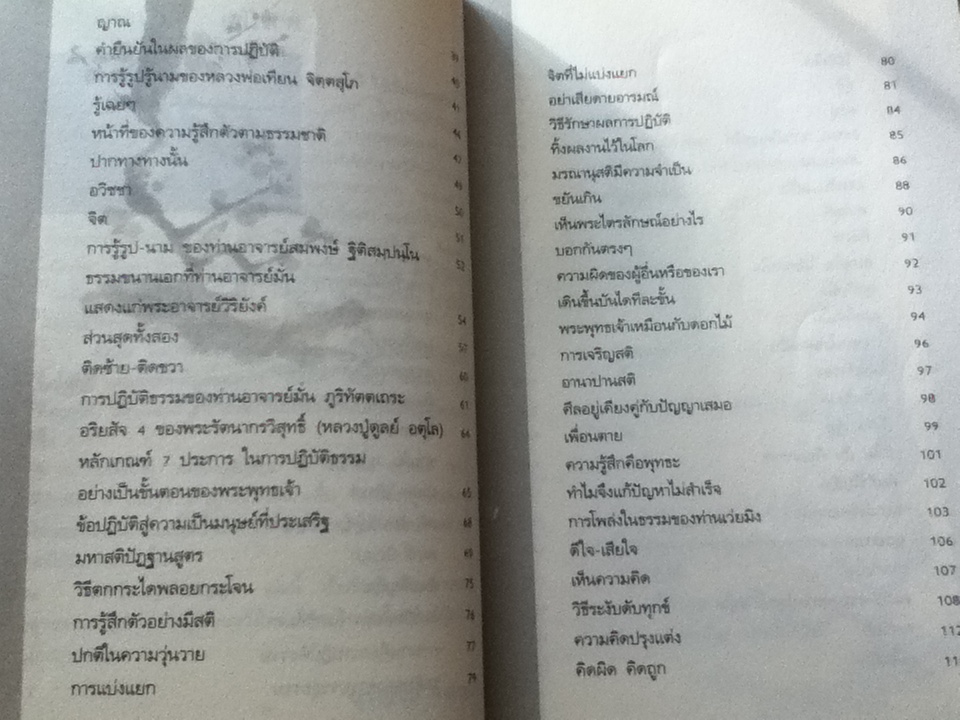 ญาณ
คำยืนยันในผลของการปฏิบัติ 39
การรู้รูปรู้นามของหลวงพ่อเทียน จิตฺตสุโภ 40
รู้เฉยๆ 41
หน้าที่ของความรู้สึกตัวตามธรรมชาติ
ปากทางทางนั้น
อวิชชา 49
จิต 50
การรู้รูป-นาม ของท่านอาจารย์สมพงษ์ ฐิติสมฺปนฺโน 51
ธรรมขนานเอกที่ท่านอาจารย์มั่น 52
แสดงแก่พระอาจารย์วิริยังค์
ส่วนสุดทั้งสอง 54
ติดซ้าย-ติดขวา 57
การปฏิบัติธรรมของท่านอาจารย์มั่น ภูริทัตตเถระ 60
อริยสัจ 4 ของพระรัตนากรวิสุทธิ์ (หลวงปู่ดูลย์ อตุโล) 61
หลักเกณฑ์ 7 ประการ ในการปฏิบัติธรรม 64
อย่างเป็นขั้นตอนของพระพุทธเจ้า
ข้อปฏิบัติสู่ความเป็นมนุษย์ที่ประเสริฐ 65
มหาสติปัฏฐานสูตร 68
วิธีตกกระไดพลอยกระโจน 75
การรู้สึกตัวอย่างมีสติ 76
ปกติในความวุ่นวาย 77
การแบ่งแยก 79
จิตที่ไม่แบ่งแยก 80
อย่าเสียดายอารมณ์ 81
วิธีรักษาผลการปฏิบัติ 84
ทิ้งผลงานไว้ในโลก 85
มรณานุสติมีความจำเป็น 86
ขยันเกิน 88
เห็นพระไตรลักษณ์อย่างไร 90
บอกกันตรงๆ 91
ความผิดของผู้อื่นหรือของเรา 92
เดินขึ้นบันไดทีละขั้น 93
พระพุทธเจ้าเหมือนกับดอกไม้ 94
การเจริญสติ 96
อานาปานสติ 97
ศีลอยู่เคียงคู่กับปัญญาเสมอ 98
เพื่อนตาย 99
ความรู้สึกคือพุทธะ 101
ทำไมจึงแก้ปัญหาไม่สำเร็จ 102
การโพล่งในธรรมของท่านเว่ยมิง 103
ดีใจ-เสียใจ 106
เห็นความคิด 107
วิธีระงับดับทุกข์ 108
ความคิดปรุงแต่ง 112
คิดผิด คิดถูก